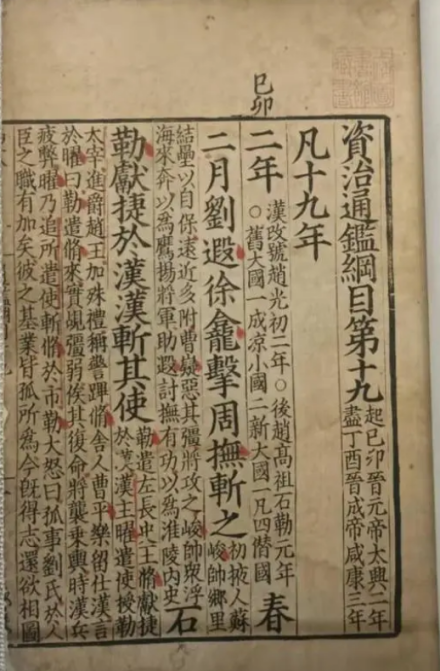 資治通鑑綱目第十九
起己卯晉元帝太興二年
盡丁酉晉成帝咸康三年
凡十九年
己卯
二年
漢改號趙光初二年○後趙高祖石勒元年
○舊大國一成涼小國二新大國一凡四僭國
春
二月劉遐徐龕擊周撫斬之
初掖人蘇
峻帥鄉里
結壘以自保遠近多附曹嶷惡其彊將攻之峻帥衆浮
海來奔以爲鷹揚將軍助遐討撫有功以爲淮陵内史
石
勒獻捷於漢漢斬其使
勒遣左長史王脩獻捷
於漢漢主曜遣使授勒
太宰進爵趙王加殊禮稱警蹕脩舍人曹平樂留仕漢言
於曜曰勒遣脩來實覘彊弱俟其復命將襲乘輿時漢兵
疲弊曜乃追所遣使斬脩於市勒大怒曰孤事劉氏於人
臣之職有加矣彼之基業皆孤所爲今旣得志還欲相圖